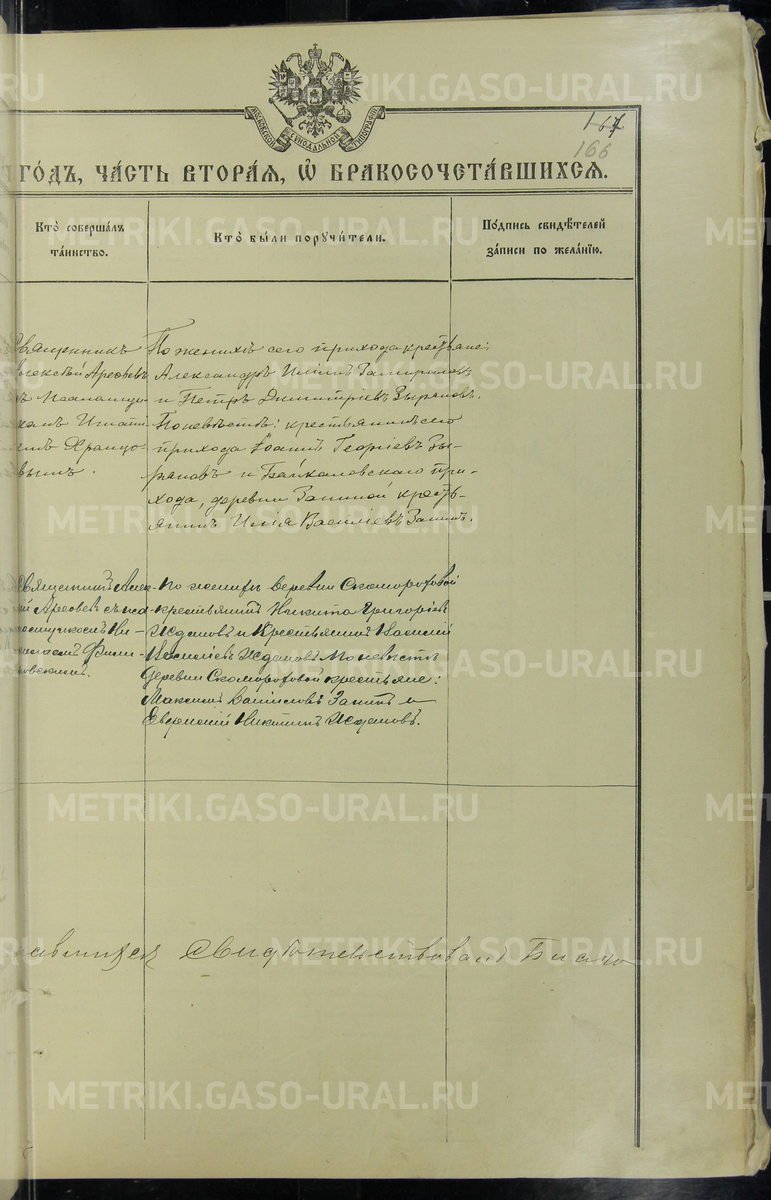 МОСКОВСКОЙ СѴНОДАЛЬНОЙ ТИПОГРАФІИ
167
166
ГО́ДЪ, ЧА́СТЬ ВТОРА́Я, Ѡ БРАКОСОЧЕТА́ВШИХСЯ.
Кто̀ соверша́лъ
та́инство.
Кто̀ бы́ли поручи́тели.
По́дпись свидѣ́телей
за́писи по жела́нїю.
Священникъ
Алексѣй Арефьевъ
съ Псаломщи-
комъ Игнаті-
емъ
вымъ.
По женихѣ сего прихода крестьяне:
Александръ Иліинъ
и Петръ Димитріевъ Зыряновъ.
По невѣстѣ: крестьянинъ сего
прихода Іоаннъ Георгіевъ Зы-
ряновъ и Байкаловскаго при-
хода, деревни Запиной кресть-
янинъ Илія Василіевъ Запинъ.
Священникъ Алек-
ѣй Арефьевъ съ пса-
ломщикомъ Ни-
колаемъ Фили-
повскимъ.
По женихѣ деревни Скоморохо́вой
крестьянинъ Никита Григоріевъ
Ждановъ и Крестьянинъ Василій
Василіевъ Ждановъ. По невѣстѣ
деревни Скомороховой крестьяне:
Максимъ Запинъ и
Евфимій Никитинъ Ждановъ.
авшихся Свидѣтельствовалъ
METRIKI.GASO-URAL.RU